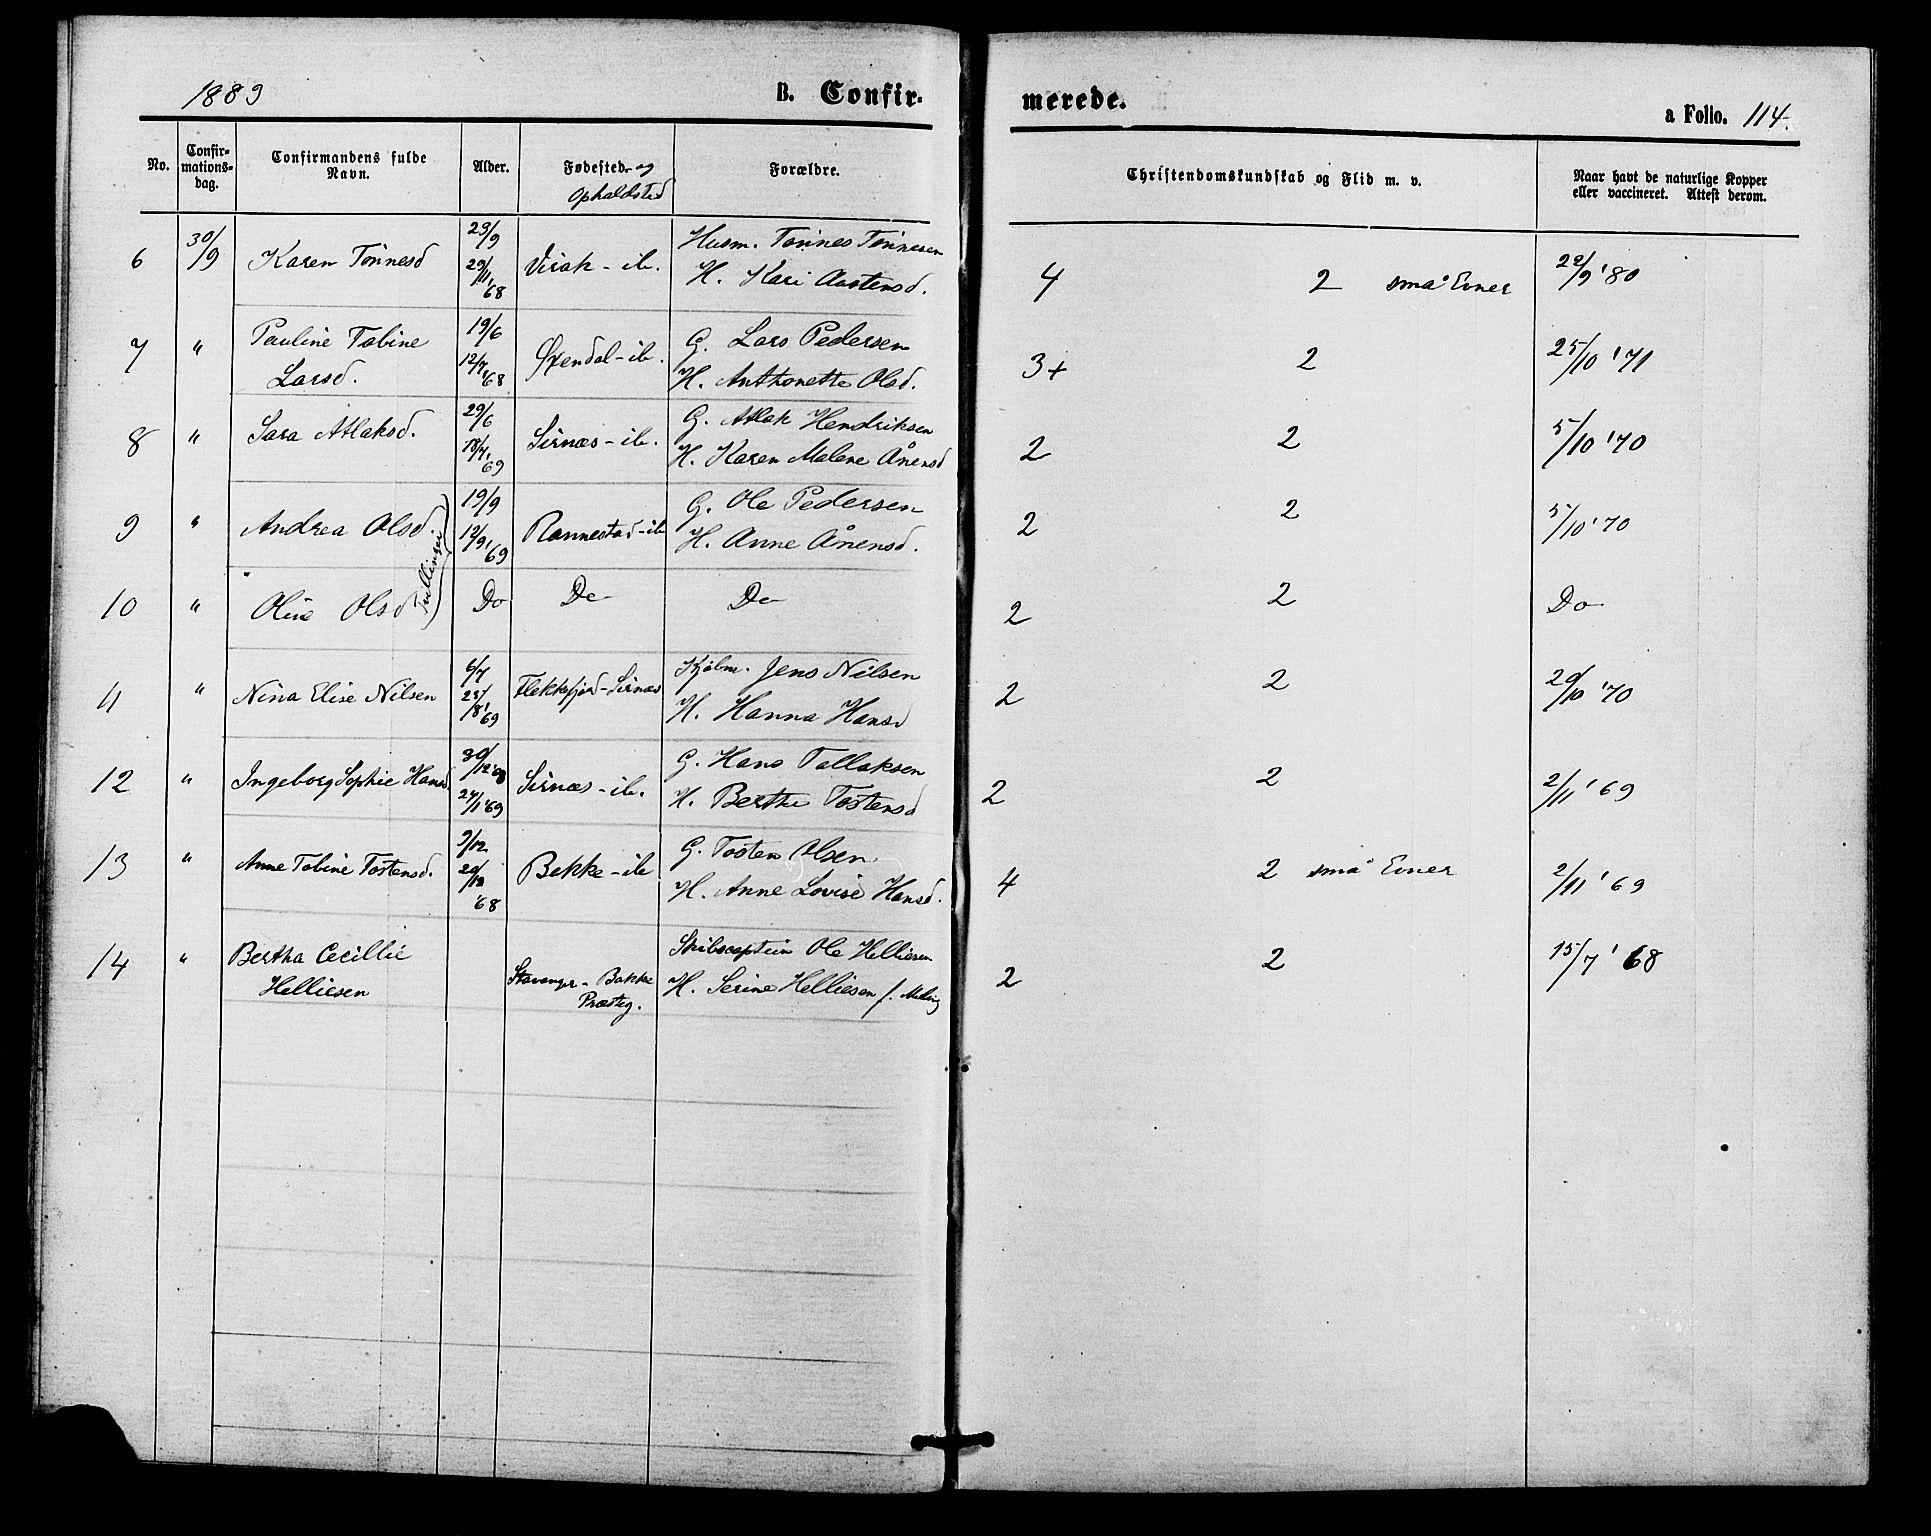 1883 B. Confir- merede. a Folio. 114.
No. Confir-mations-dag. Confirmandens fulde Navn. Alder. Fødested og Opholdsted Forældre. Christendomskundskab og Flid m. v. Naar havt de naturlige Kopper eller vaccineret. Attest derom.
6 30/9 Karen Tønnesd 29/9 Virak - ib. Husm. Tønnes Tønnesen
29/11 '68 H. Kari Aastensd. 4 2 små Evner 22/9 '80
7 " Pauline Tobine 19/6 Øxendal - ib. G. Lars Pedersen
Larsd. 12/7 '68 H. Anthonette Olsd. 3+ 2 25/10 '71
8 " Sara Atlaksd. 29/6 Sirnæs - ib. G. Atlak Hendriksen
18/7 '69 H. Karen Malene Ånensd 2 2 5/10 '70
9 " Andrea Olsd 19/9 Rannestad - ib G. Ole Pedersen
12/9 '69 H. Anne Ånensd. 2 2 5/10 '70
Tvillinger
10 " Olive Olsd Do Do Do 2 2 Do
11 " Nina Elise Nilsen 6/7 Flekkefjord - Sirnæs Kjøbm. Jens Nilsen
25/8 '69 H. Hanna Hansd 2 2 20/10 '70
12 " Ingeborg Sophie Hansd 30/12 '68 Sirnæs - ib. G. Hans Tallaksen
24/1 '69 H. Berthe Tostensd 2 2 2/11 '69
13 " Anne Tobine Tostensd. 9/12 Bakke - ib G. Tosten Olsen
20/12 '68 H. Anne Lovise Hansd. 4 2 små Evner 2/11 '69
14 " Bertha Cecillie Skibscaptein Ole Helliesen
Helliesen Stavanger - Bakke Præsteg. H. Serine Helliesen f. Meling 2 2 15/7 '68